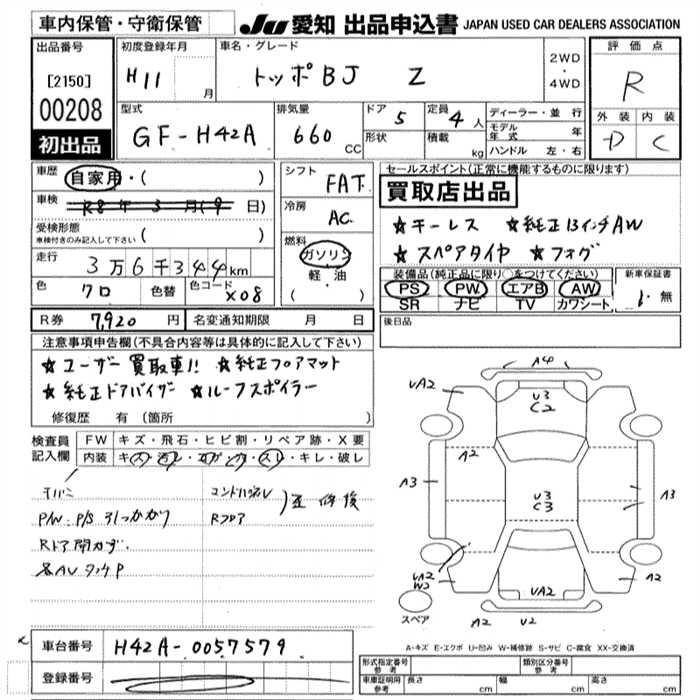 車内保管・守衛保管 JU 愛知 出品申込書 JAPAN USED CAR DEALERS ASSOCIATION
出品番号 初度登録年月 車名・グレード 評価点
[2150] H11 月 トッポBJ Z 2WD・4WD R
00208 型式 排気量 ドア 定員 ディーラー・並行 外装 内装
初出品 GF-H42A 660 CC 5 4人 モデル年式 年 D C
形状 積載 kg ハンドル 左・右
車歴 自家用・( ) シフト FAT セールスポイント(正常に機能するものに限ります)
車検 R8年3月(9日) 買取店出品
受検形態 車検付きのみ記入して下さい ( ) 冷房 AC ★キーレス ★純正13インチAW
★スペアタイヤ ★フォグ
走行 3万6千344km 燃料 ガソリン・軽油 ( ) 装備品(純正品に限り○をつけてください) 新車保証書
色 クロ 色替 色コード X08 PS PW エアB AW 無
SR ナビ TV カワシート
R券 7,920円 名変通知期限 月 日 後日品
注意事項申告欄(不具合内容等は具体的に記入して下さい)
★ユーザー買取車!! ★純正フロアマット
★純正ドアバイザー ★ルーフスポイラー
修復歴 有 (箇所 )
検査員記入欄 FW キズ・飛石・ヒビ割・リペア跡・X要
内装 キズ・汚レ・コゲ・スレ・キレ・破レ
P/W P/S 引っかかり Rフロア
Rドア開カず.
A4
UA2 U3 C2
A2
A3 U3 C3 A3
UA2 W2 UA2 A2
スペア A2 U2
A-キズ E-エクボ U-凹み W-補修跡 S-サビ C-腐食 XX-交換済
車台番号 H42A-0057579
登録番号
形式指定番号 参考 類別区分番号 参考
車庫証明用 参考 長さ cm 幅 cm 高さ cm